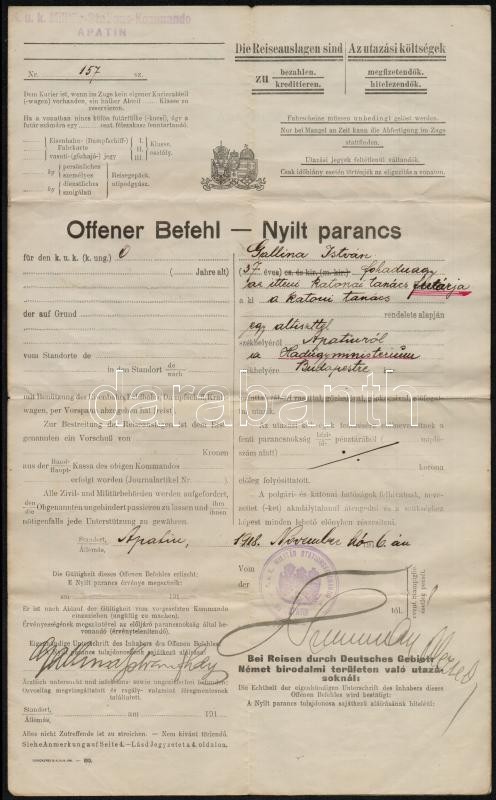 k. u. k. Militär-Stations-Kommando
APATIN
Nr. 157 sz.
Die Reiseauslagen sind
Az utazási költségek
zu bezahlen. kreditieren.
megfizetendők. hitelezendők.
Dem Kurier ist, wenn im Zuge kein eigener Kurierabteil
(-wagen) vorhanden, ein halber Abteil Klasse zu
reservieren.
Ha a vonatban nincs külön futárfülke (-kocsi), úgy a
futár számára egy oszt. félszakasz fenntartandó.
Eisenbahn- (Dampfschiff-)
Fahrkarte
vasuti-(gőzhajó-) jegy
II. III. Klasse. osztály.
by persönliches személyes
by dienstliches szolgálati
Reisegepäck. utipodgyász.
Fahrscheine müssen unbedingt gelöst werden.
Nur bei Mangel an Zeit kann die Abfertigung im Zuge
stattfinden.
Utazási jegyek feltétlenül váltandók.
Csak időhiány esetén történjék az eligazítás a vonaton.
Offener Befehl — Nyilt parancs
für den k. u. k. (k. ung.) 0
Gallina István
(Jahre alt)
(37 éves) cs. és kir. (m. kir.) főhadnagy
az itteni katonai tanács futárja
a ki a katoni tanács
der auf Grund
rendelete alapján
egy altiszttel
székhelyéről Apatinról
vom Standorte de
a Hadügyministerium
in den Standort de nach
székhelyére Budapestre
mit Benützung der Eisenbahn
wagen, per Vorspann abzugehen hat
Zur Bestreitung der Reiseauslagen ist dem Erst-
genannten ein Vorschuß von
Kronen
aus der Haupt- Kassa des obigen Kommandos
korona
erfolgt worden (Journalartikel Nr. )
előleg folyósíttatott.
Alle Zivil- und Militärbehörden werden aufgefordert,
A polgári- és katonai hatóságok felhivatnak, neve-
den die Obgenannten ungehindert passieren zu lassen und
zett (-ket) akadálytalanul átengedni és a szükséghez
nötigenfalls jede Unterstützung zu gewähren.
képest minden lehető előnyben részesíteni.
Standort, Állomás, Apatin, 1918. November hó 6.-án
Die Gültigkeit dieses Offenen Befehles erlischt:
E Nyilt parancs érvénye megszűnik:
am 191
Vom der
tól.
Er ist nach Ablauf der Gültigkeit vom vorgesetzten Kommando
einzuziehen (ungiltig zu machen).
Érvényességének megszüntével az elöljáró parancsnokság által be-
vonandó (érvénytelenítendő).
Eigenhändige Unterschrift des Inhabers des Offenen Befehles:
Gallina főhadnagy
Bei Reisen durch Deutsches Gebiet:
Német birodalmi területen való utazá-
soknál:
Die Echtheit der eigenhändigen Unterschrift des Inhabers dieses
Offenen Befehles wird bestätigt:
A Nyilt parancs tulajdonosa sajátkezű aláírásának hiteléül:
Ärztlich untersucht und infektions- sowie ungezieferfrei befunden:
Orvosilag megvizsgáltatott és ragály- valamint féregmentesnek
találtatott.
Standort, Állomás, am 191
Alles nicht Zutreffende ist zu streichen. — Nem kívánt törlendő.
Siehe Anmerkung auf Seite 4. — Lásd Jegyzetet a 4. oldalon.
darabanth